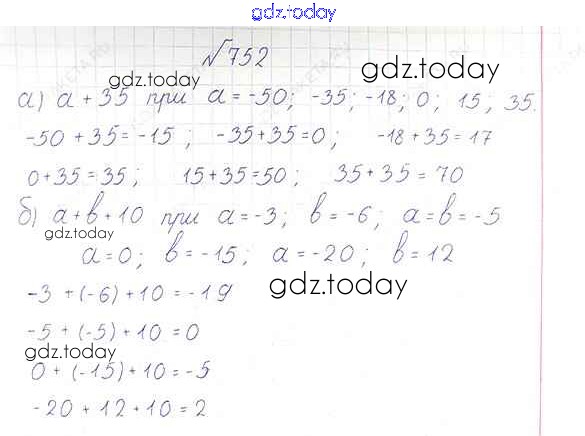 gdz.today
№752
gdz.today gdz.today
а) a + 35 при a = -50; -35; -18; 0; 15; 35.
-50 + 35 = -15; -35+35=0; -18+35=17
0+35=35; 15+35=50; 35+35=70
б) a+b+10 при a=-3; b=-6; a=b=-5
gdz.today
a=0; b=-15; a=-20; b=12
-3 + (-6) + 10 = -19
gdz.today
-5 + (-5) + 10 = 0
gdz.today
0 + (-15) + 10 = -5
-20 + 12 + 10 = 2